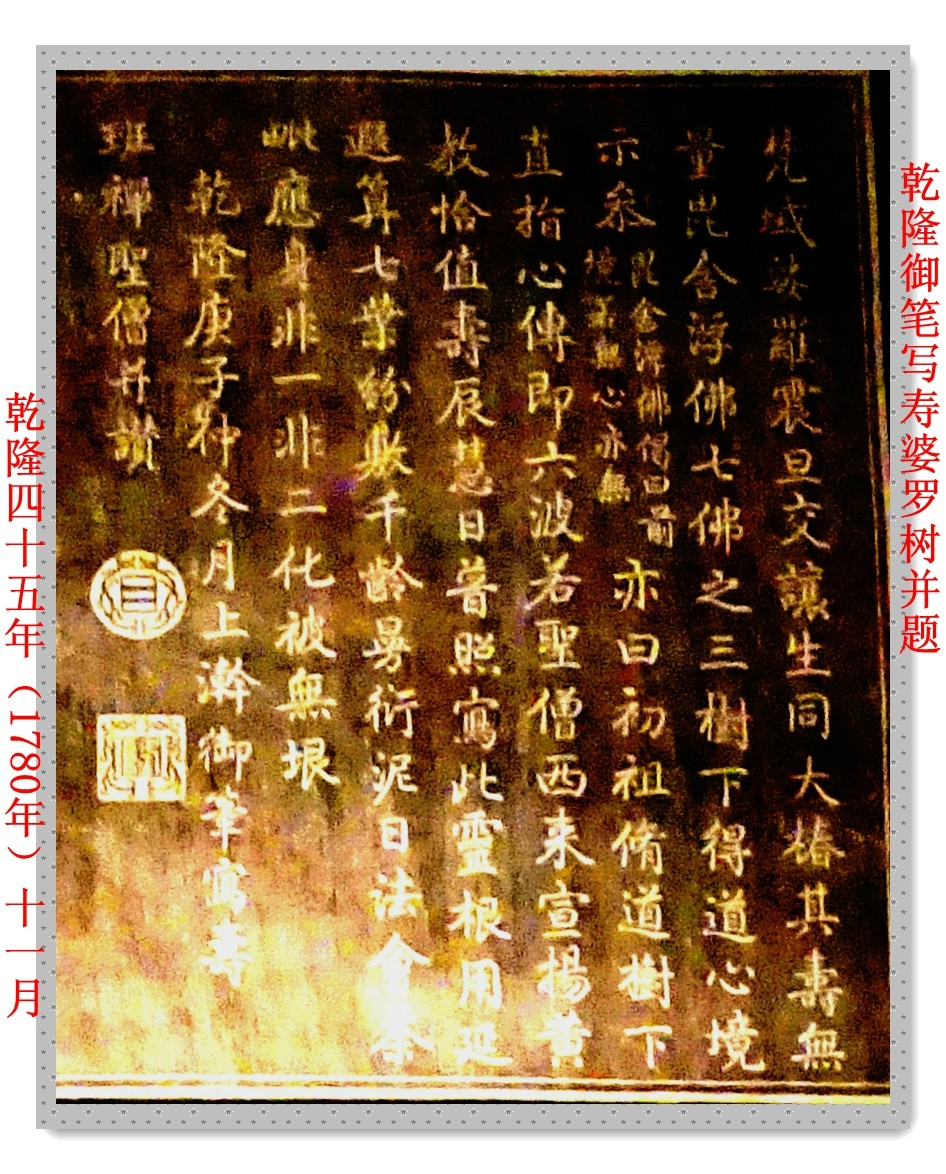 乾隆御笔写寿婆罗树并题
梵域娑羅震旦交讓生同大椿其壽無
量毘舍浮佛七佛之三樹下得道心境
示衆
毘舍浮佛偈曰前
境若無心亦無
亦曰初祖脩道樹下
直指心傳即六波若聖僧西来宣揚黄
教恰值壽辰慧日普照寫此靈根用延
遐算七葉紛敷千齡曼衍泥日法會
毗應身非一非二化被無垠
乾隆庚子仲冬月上澣御筆寫壽
班禪聖僧并讚
乾隆四十五年（1780年）十一月